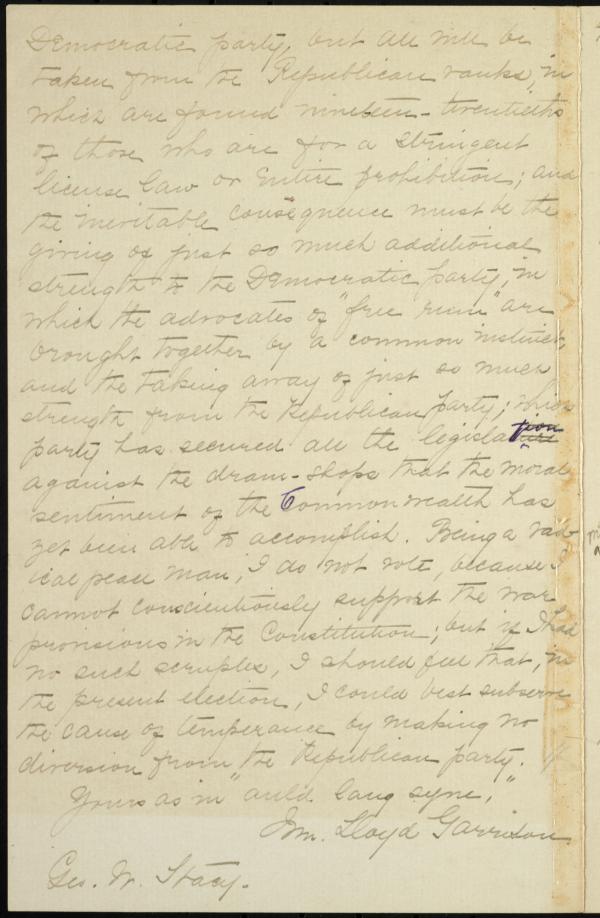 Democratic party, but all will be
taken from the Republican ranks, in
which are found nineteen-twentieths
of those who are for a stringent
license law or entire prohibition; and
the inevitable consequence must be the
giving of just so much additional
strength to the Democratic party, in
which the advocates of "free rum" are
brought together by a common instinct,
and the taking away of just so much
strength from the Republican party; which
party has secured all the legislation
against the dram-shops that the moral
sentiment of the Commonwealth has
yet been able to accomplish. Being a rad-
ical peace man, I do not vote, because I
cannot conscientiously support the war
provisions in the Constitution; but if I had
no such scruples, I should feel that, in
the present election, I could best subserve
the cause of temperance by making no
diversion from the Republican party. //
Yours as in "auld lang syne,"
Wm. Lloyd Garrison.
Geo. W. Stacy.